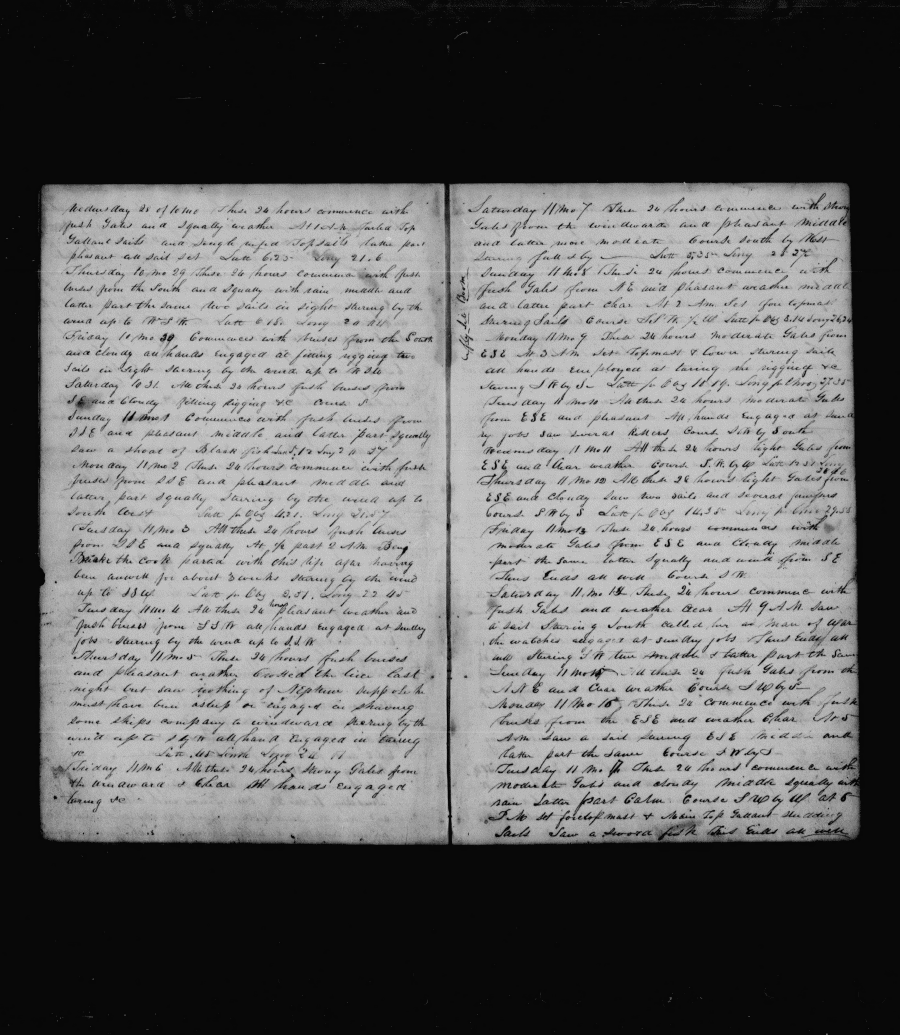 Wednesday 28 of 10 mo These 24 hours commence with
fresh Gales and squally weather At 1 oclock furled Top
Gallant sails and Single reefed Topsails latter part
pleasant all sail set Latt 6.25 Long 21.6
Thursday 10 mo 29 These 24 hours Commence with fresh
breses from the South and Squally with rain middle and
latter part the same two Sails in sight stering by the
wind up to W S W. Latt Long
Friday 10 mo 30 Commences with brises from the South
and cloudy all hands engaged at fitting rigging two
Sails in sight stering by the wind up to
Saturday 10 31. All these 24 hours fresh brises from
SE and Cloudy fitting Rigging &c Course S
Sunday 11 mo 1 Commences with fresh brises from
SSE and pleasant middle and latter part squally
saw a shoal of Black fish
Monday 11 mo 2 These 24 hours commence with fresh
brises from SSE and pleasant middle and
latter part squally Stering by the wind up to
South West Latt pr Obs 4.31. Long 21.57
Tuesday 11 mo 3 All these 24 hours fresh brises
from SSE and squally At ½ past 2 A M Benj
the cook parted with this life after having
ben unwell for about 3 weeks stering by the wind
up to SSW Latt pr Obs 2.51. Long 22 45
Tuesday 11 mo 4 All these 24 hours pleasant weather and
fresh brises from SSW all hands engaged at sundry
jobs stering by the wind up to S.S.W
Thursday 11 mo 5 These 24 hours fresh brises
and pleasant weather Crossed the line last
night but saw nothing of Neptune Suppose he
must have ben asleep or engaged in shaveing
some ships company to windward stering by the
wind up to all hand engaged in taring
&c Latt 45 South Long 24
Friday 11 mo 6 All these 24 hours strong Gales from
the windward & Clear All hands engaged
taring &c
Saturday 11 mo 7 These 24 hours commence with strong
Gales from the windward and pleasant middle
and latter more moderate Course South by West
Stering full & by Latt 5,35 Long
Sunday 11 mo 8 These 24 hours commence with
fresh Gales from S E and pleasant weather middle
and latter part Clear At 2 A m Set foretopmast
stering Sails Course Latt pr Obs 8.14
Monday 11 mo 9 These 24 hours moderate Gales from
ESE At 3 Am Set Topmast & lower stering sails
all hands employed at taring the rigging &c
Stering S W by S Latt pr Obs 10.19. Long 27.35
Tuesday 11 mo 10 All these 24 hours moderate Gales
from ESE and pleasant All hands engaged at Sund
ry jobs Saw several Killers Course SW by South
Wednesday 11 Mo 11 All these 24 hours light Gales from
ESE and Clear weather Course S.W. by
Thursday 11 Mo 12 All these 24 hours light Gales from
ESE and Cloudy Saw two Sails and several
Course S W by S Latt pr Obs 14.35 Long
Friday 11 mo 13 These 24 hours commences with
moderate Gales from ESE and Cloudy middle
part the Same latter Squally and wind from S E
Thus Ends all well Course S W
Saturday 11 mo 14 These 24 hours commence with
fresh Gales and weather Clear At 9 A.M. Saw
a sail Stering South called her a Man of War
the watches engaged at sundry jobs Thus ends all
well Stering S W middle & latter part the Same
Sunday 11 mo 15 All these 24 fresh Gales from the
N N E and Clear weather Course S W by S
Monday 11 mo 16 These 24 commence with fresh
brises from the ESE and weather Clear At 5
A m Saw a sail stering ESE middle and
latter part the same Course S W by S
Tuesday 11 mo 17 These 24 hours commence with
moderate Gales and cloudy middle squally with
rain latter part Calm Course S W by W at 5
P.M. set foretopmast & Main Top Gallant studding
Sails Saw a sword fish thus Ends all well